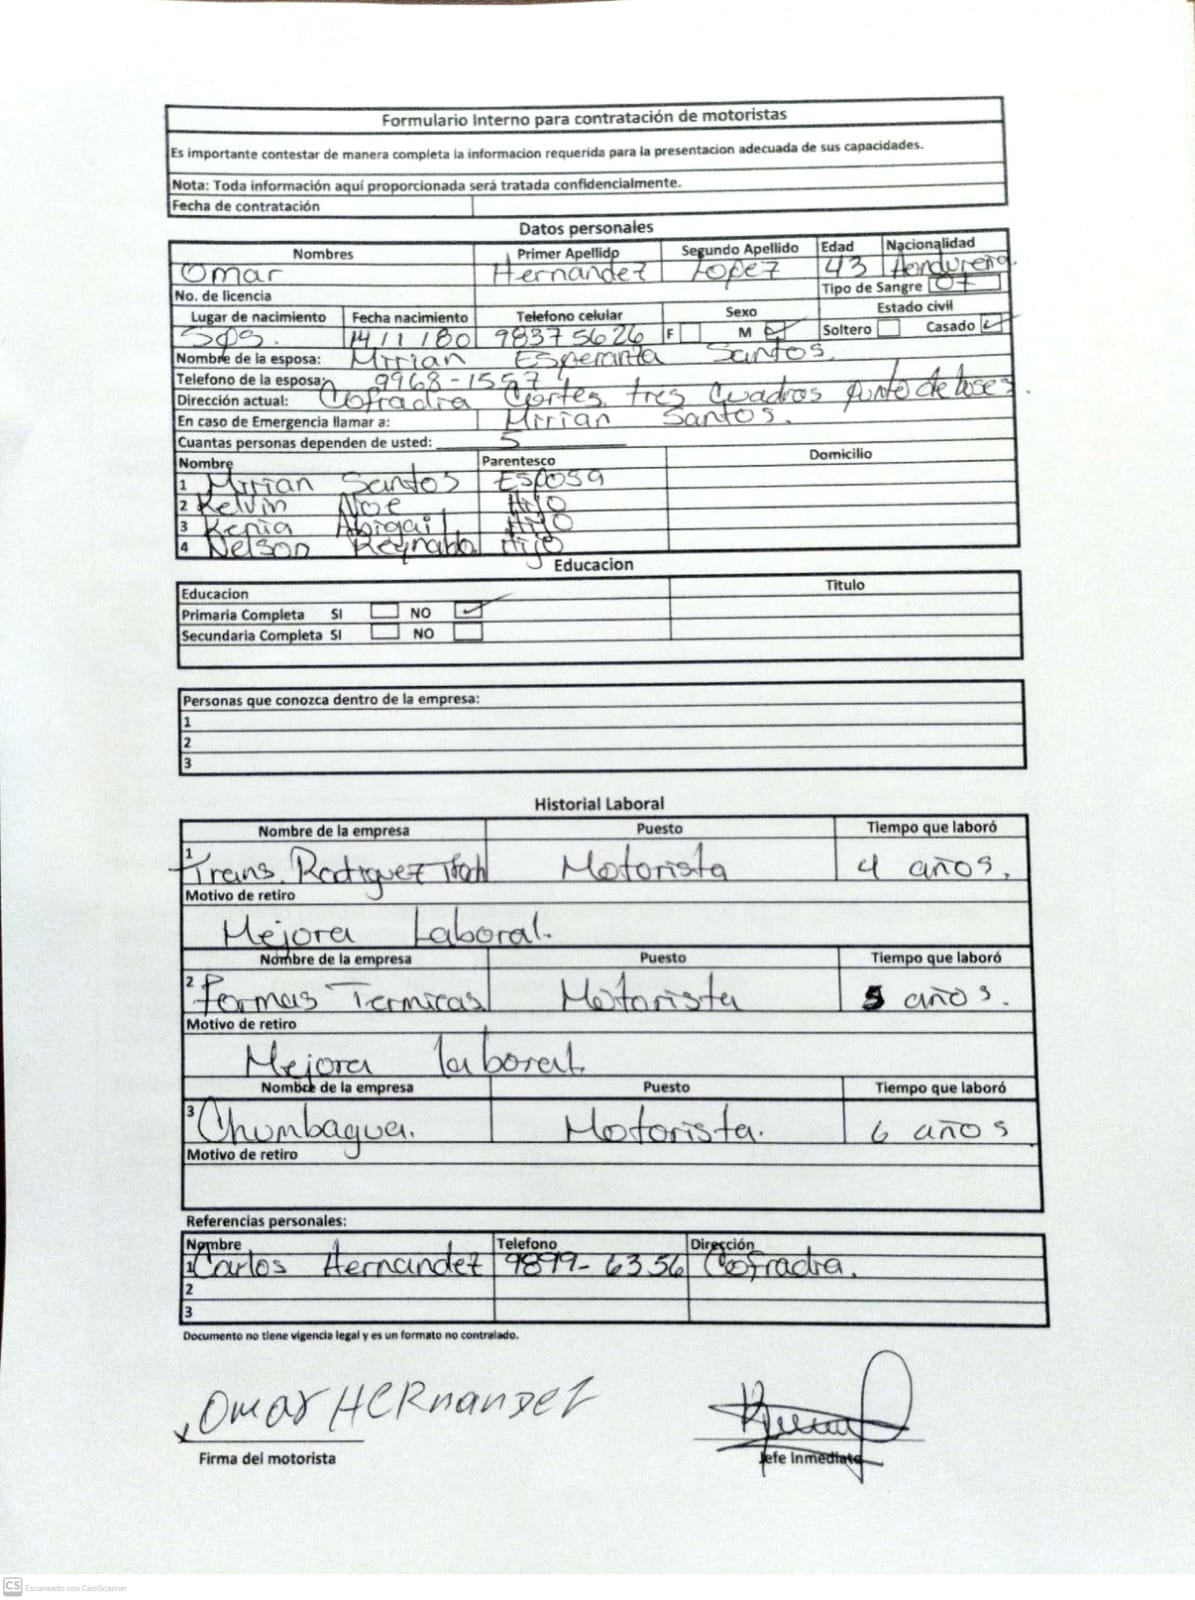 Formulario Interno para contratación de motoristas
Es importante contestar de manera completa la informacion requerida para la presentacion adecuada de sus capacidades.
Nota: Toda información aquí proporcionada será tratada confidencialmente.
Fecha de contratación
Datos personales
Nombres Primer Apellido Segundo Apellido Edad Nacionalidad
Omar Hernandez Lopez 43 Hondureña.
No. de licencia Tipo de Sangre O+
Lugar de nacimiento Fecha nacimiento Telefono celular Sexo Estado civil
Sps. 14/1/80 98375626 F M Soltero Casado
Nombre de la esposa: Mirian Esperanza Santos.
Telefono de la esposa: 9968-1557
Dirección actual: Cofradia Cortes, tres Cuadros punto de buses.
En caso de Emergencia llamar a: Mirian Santos.
Cuantas personas dependen de usted: 5
Nombre Parentesco Domicilio
1 Mirian Santos Esposa
2 Kelvin Noe Hijo
3 Kenia Abigail Hijo
4 Nelson Reynaldo Hijo
Educacion
Educacion Titulo
Primaria Completa SI NO
Secundaria Completa SI NO
Personas que conozca dentro de la empresa:
1
2
3
Historial Laboral
Nombre de la empresa Puesto Tiempo que laboró
1 Trans. Rodriguez Motorista 4 años.
Motivo de retiro
Mejora Laboral.
Nombre de la empresa Puesto Tiempo que laboró
2 Formas Termicas Motorista 5 años.
Motivo de retiro
Mejora laboral.
Nombre de la empresa Puesto Tiempo que laboró
3 Chumbagua. Motorista. 6 años
Motivo de retiro
Referencias personales:
Nombre Telefono Dirección
1 Carlos Hernandez 9899-6356 Cofradia.
2
3
Documento no tiene vigencia legal y es un formato no contralado.
Omar HERnandEz
Firma del motorista Jefe Inmediato
CS Escaneado con CamScanner